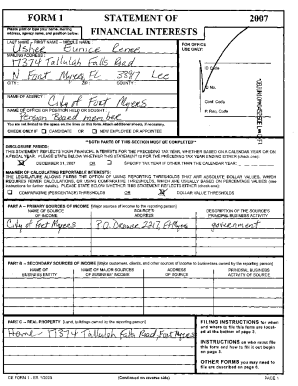 FORM 1 STATEMENT OF 2007
FINANCIAL INTERESTS
Please print or type your name, mailing address, agency name, and position below:
LAST NAME -- FIRST NAME -- MIDDLE NAME
FOR OFFICE USE ONLY:
Usher Eunice Lener
MAILING ADDRESS
17374 Tallulah Falls Road
N Fort Myers FL Lee
CITY ZIP COUNTY
ID Code
ID No.
NAME OF AGENCY
City of Fort Myers
Conf. Code
NAME OF OFFICE OR POSITION HELD OR SOUGHT
P. Req. Code
Pension Board member
You are not limited to the space on the lines on this form. Attach additional sheets, if necessary.
CHECK ONLY IF CANDIDATE OR NEW EMPLOYEE OR APPOINTEE
**BOTH PARTS OF THIS SECTION MUST BE COMPLETED**
DISCLOSURE PERIOD:
THIS STATEMENT REFLECTS YOUR FINANCIAL INTERESTS FOR THE PRECEDING TAX YEAR, WHETHER BASED ON A CALENDAR YEAR OR ON A FISCAL YEAR. PLEASE STATE BELOW WHETHER THIS STATEMENT IS FOR THE PRECEDING TAX YEAR ENDING EITHER (check one):
DECEMBER 31, 2007 OR SPECIFY TAX YEAR IF OTHER THAN THE CALENDAR YEAR:
MANNER OF CALCULATING REPORTABLE INTERESTS:
THE LEGISLATURE ALLOWS FILERS THE OPTION OF USING REPORTING THRESHOLDS THAT ARE ABSOLUTE DOLLAR VALUES, WHICH REQUIRES FEWER CALCULATIONS, OR USING COMPARATIVE THRESHOLDS, WHICH ARE USUALLY BASED ON PERCENTAGE VALUES (see instructions for further details). PLEASE STATE BELOW WHETHER THIS STATEMENT REFLECTS EITHER (check one):
COMPARATIVE (PERCENTAGE) THRESHOLDS OR DOLLAR VALUE THRESHOLDS
PART A -- PRIMARY SOURCES OF INCOME [Major sources of income to the reporting person]
NAME OF SOURCE OF INCOME SOURCE'S ADDRESS DESCRIPTION OF THE SOURCE'S PRINCIPAL BUSINESS ACTIVITY
City of Fort Myers P.O. Drawer 2217 Ft Myers government
PART B -- SECONDARY SOURCES OF INCOME [Major customers, clients, and other sources of income to businesses owned by the reporting person]
NAME OF BUSINESS ENTITY NAME OF MAJOR SOURCES OF BUSINESS' INCOME ADDRESS OF SOURCE PRINCIPAL BUSINESS ACTIVITY OF SOURCE
PART C -- REAL PROPERTY [Land, buildings owned by the reporting person]
Home - 17374 Tallulah Falls Road Fort Myers
FILING INSTRUCTIONS for when and where to file this form are located at the bottom of page 2.
INSTRUCTIONS on who must file this form and how to fill it out begin on page 3.
OTHER FORMS you may need to file are described on page 6.
CE FORM 1 - Eff. 1/2008 (Continued on reverse side) PAGE 1